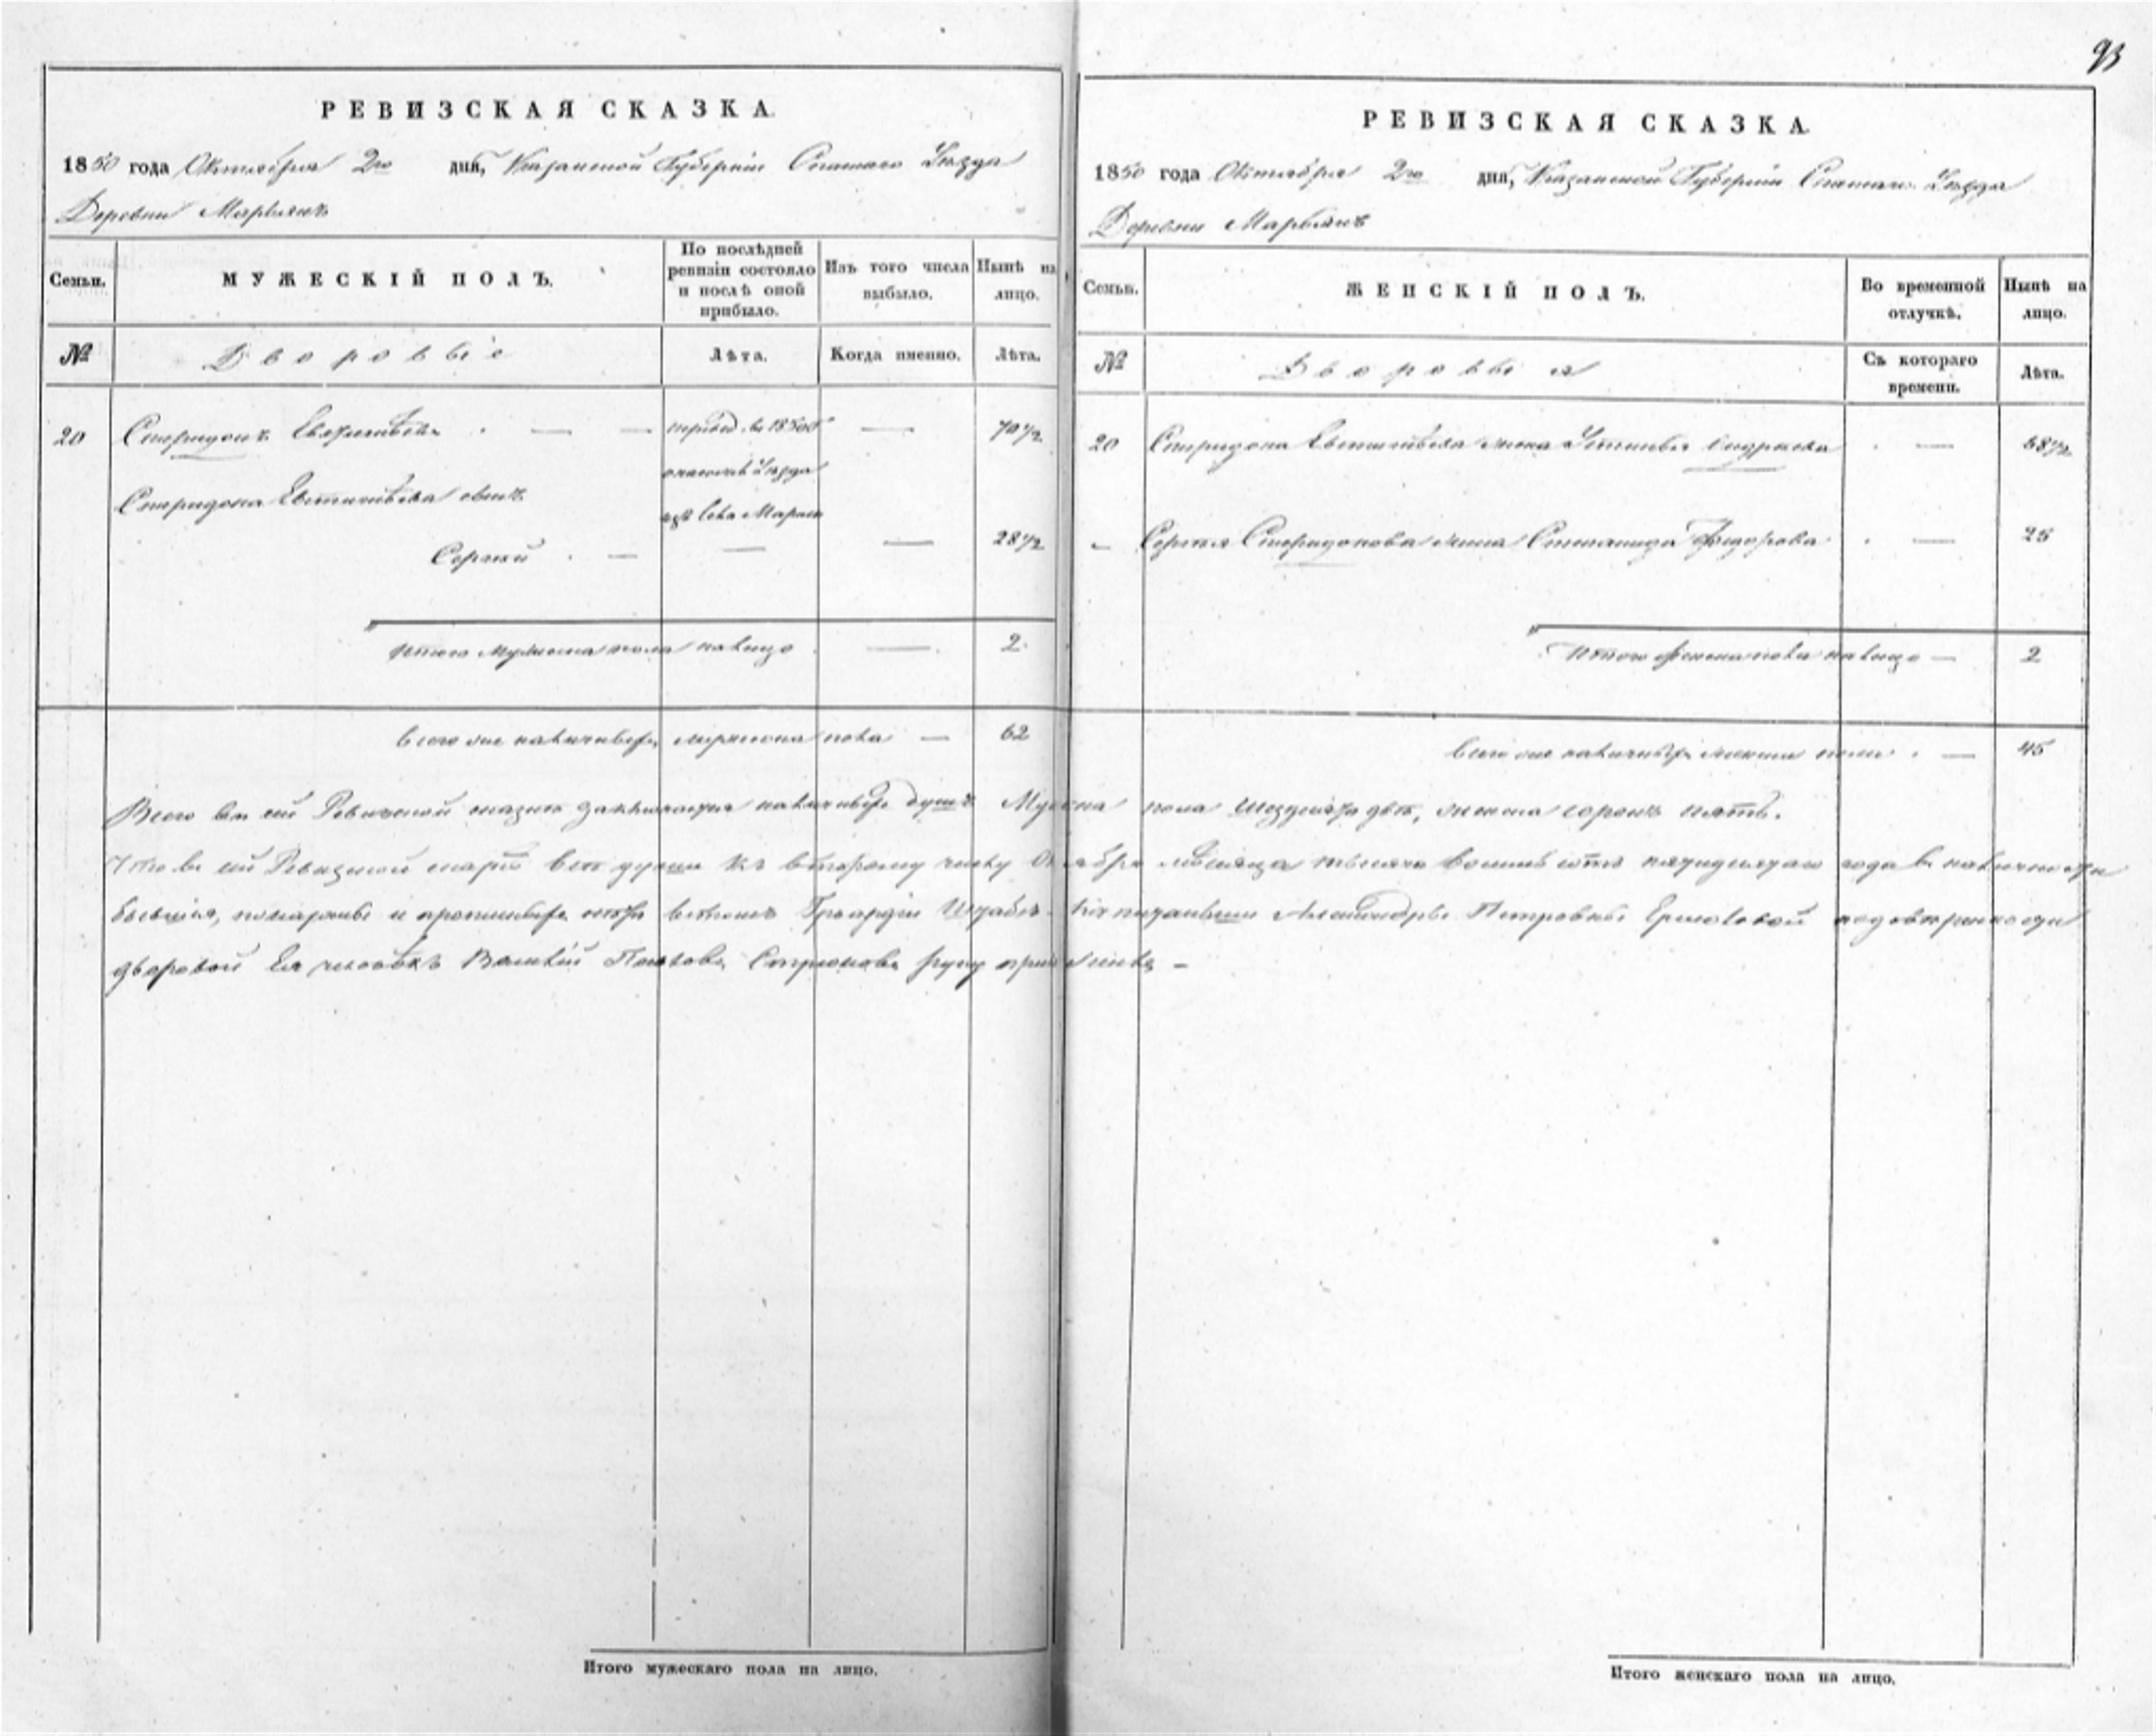 93
РЕВИЗСКАЯ СКАЗКА.
1850 года Октября 2го дня, Казанской Губернии Спаскаго Уезда
Деревни Марьянъ
Семьи. МУЖЕСКІЙ ПОЛЪ. По послѣдней ревизіи состояло и послѣ оной прибыло. Изъ того числа выбыло. Нынѣ на лицо.
№ Дворовыіе Лѣта. Когда именно. Лѣта.
20 Спиридонъ — — въ 1850 — 70 1/2
Уезда
Спиридона Евстигнѣева сынъ
изъ села
Сергей — — — 28 1/2
Итого мужеска пола налицо — 2
Всего же наличныхъ мужеска пола — 62
РЕВИЗСКАЯ СКАЗКА.
1850 года Октября 2го дня, Казанской Губерніи Спаскаго Уезда
Деревни Марьянъ
Семьи. ЖЕНСКІЙ ПОЛЪ. Во временной отлучкѣ. Нынѣ на лицо.
№ Дворовыія Съ котораго времени. Лѣта.
20 Спиридона Евстигнѣева жена Устинья — 68 1/2
Сергея Спиридонова жена Степанида Федорова — 25
Итого женска пола налицо — 2
Всего же наличныхъ женска пола — 45
Всего въ сей Ревизской сказке заключается наличныхъ душъ Мужска пола шездесятъ две, женска сорокъ пять.
Что въ сей Ревизской все души къ второму числу Октября месяца тысяча восемь сотъ пятидесятаго года в наличности
бывшія, и Гвардіи Александры Петровны Ермоловой
дворовой Ея человекъ Василій Павловъ руку приложилъ —
Итого мужескаго пола на лицо.
Итого женскаго пола на лицо.